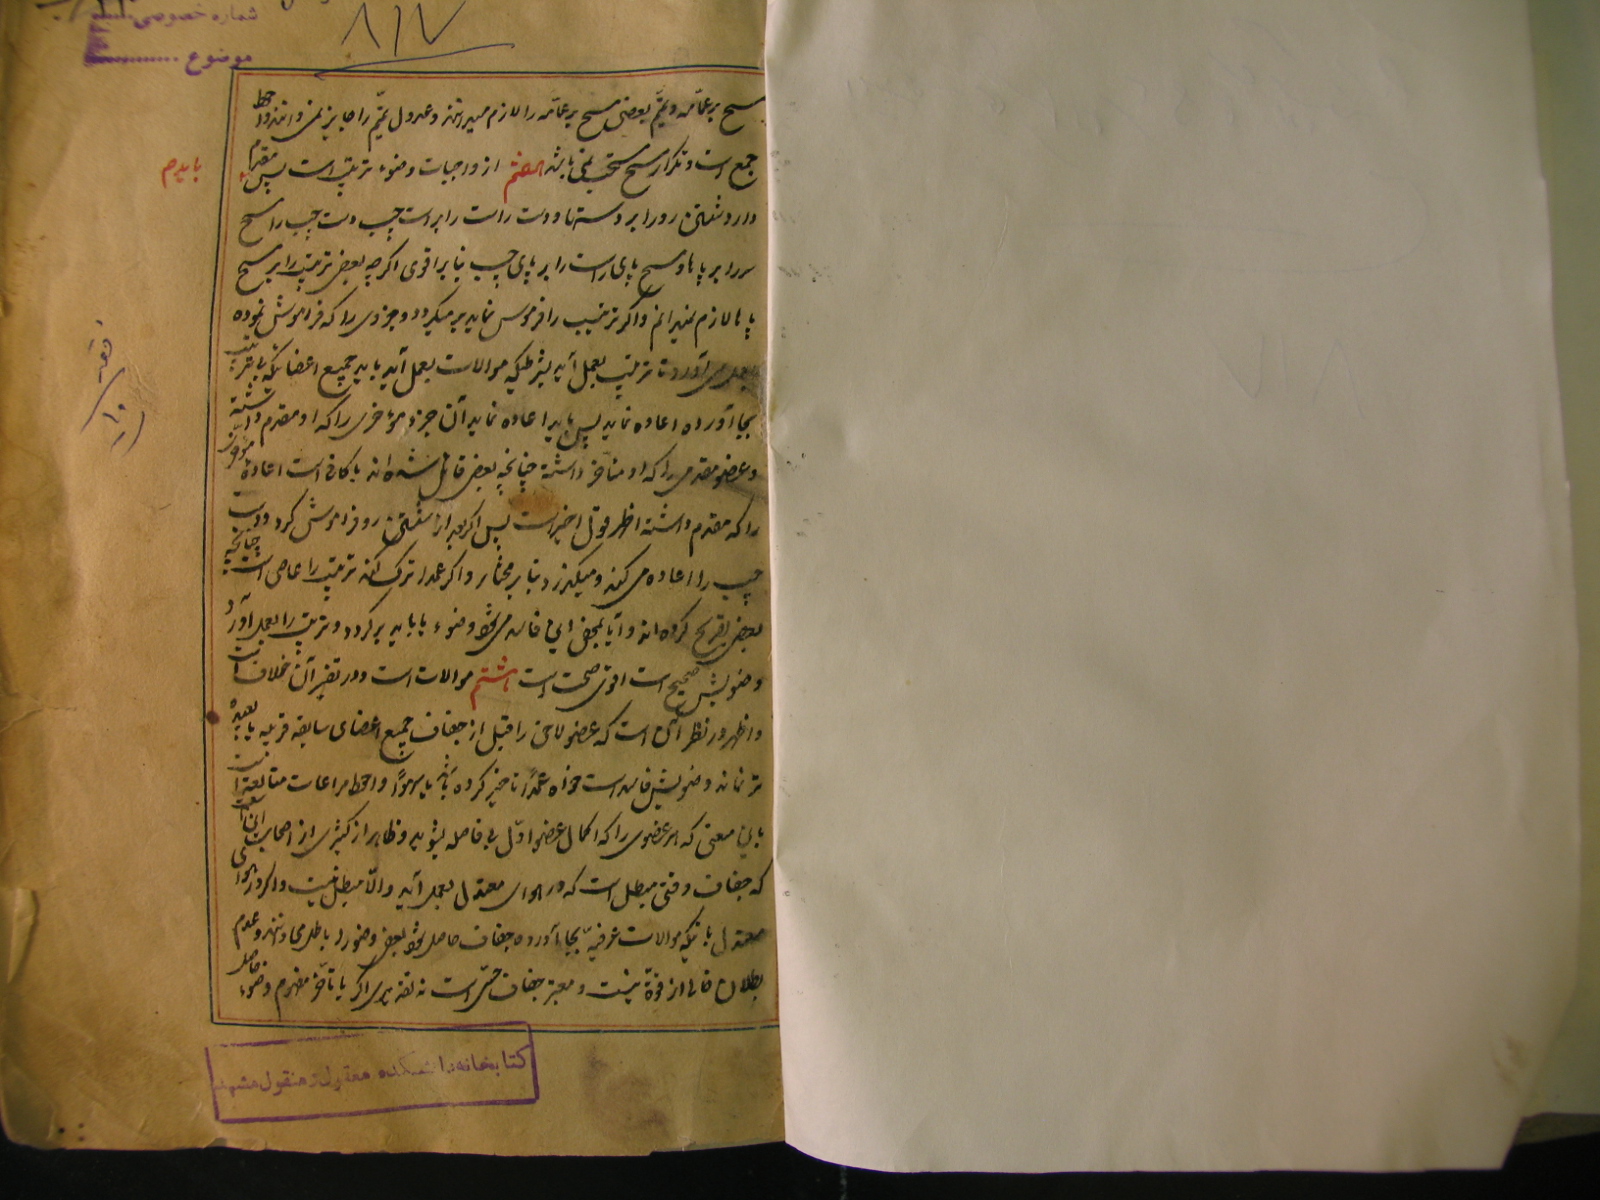 شماره خصوصی
موضوع
۸۱۷
مسح بر عمامه و تیمم بعضی مسح بر عمامه را لازم میدانند و عدول بتیمم را جایز نمی دانند و احوط
جمع است و تکرار مسح مستحب نمی باشد هفتم از واجبات وضوء ترتیب است پس مقدم
باید
دارد شستن رو را بر دستها و دست راست را بر دست چپ و دست چپ را بر مسح
سر را بر پاها و مسح پای راست را بر پای چپ بنا بر اقوی اگر چه بعضی ترتیب را بر مسح
پاها لازم نمیدانند و اگر ترتیب را فراموش نماید بر میگردد و جزوی را که فراموش نموده
بعمل می آورد تا ترتیب بعمل آید بشرطیکه موالات بعمل آید باید جمیع اعضائیکه بی ترتیب
بجا آورده اعاده نماید پس باید اعاده نماید آن جزء مؤخری را که او مقدم داشته
و عضو مقدمی را که او مؤخر داشته چنانچه بعضی قائل شده اند یا کافی است اعاده مؤخر
را که مقدم داشته اظهر قول اخیر است پس اگر بعد از شستن رو فراموش کرد و دست
چپ را اعاده می کند و میگذرد بنا بر مختار و اگر عمدا ترک کند ترتیب را عاصی است چنانچه
بعضی تصریح کرده اند و آیا بمحض این فاسد می شود وضوء یا باید بر گردد و ترتیب را بعمل آورد و
وضویش صحیح است اقوی صحت است هشتم موالات است و در تفسیر آن خلاف است
و اظهر در نظر این است که عضو لاحق را قبل از جفاف جمیع اعضای سابقه قریبه یا بعیده
تر نماند وضویش فاسد است خواه عمداً تاخیر کرده باشد یا سهواً و احوط مراعات متابعت است
باین معنی که هر عضوی را که اکمال عضو اول بی فاصله بشوید و ظاهر از کثیری از اصحاب این است
که جفاف وقتی مبطل است که در هوای معتدل بعمل آید والّا مبطل نیست و اگر در هوای
معتدل با اینکه موالات عرفیه بجا آورده جفاف حاصل شود بعضی وضو را باطل میدانند و عدم
بطلان خالی از قوة نیست و معتبر جفاف حسی است نه تقدیری اگر با تأخر مفهوم وضوء حاصل
فقه
۱۰
کتابخانه دانشکده معقول و منقول مشهد